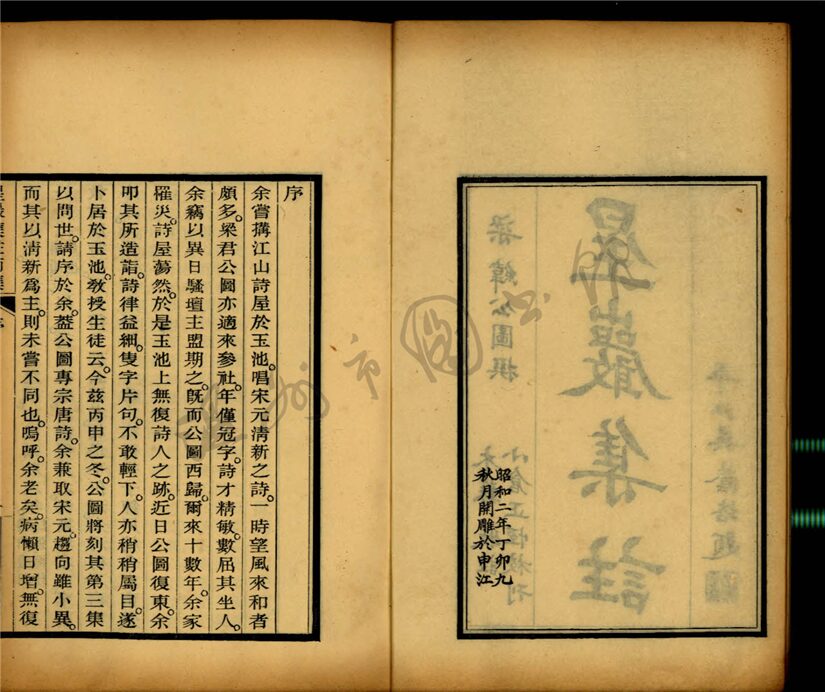 星巖集註
梁緯公圖撰
昭和二年丁卯九
秋月開雕於申江
序
余嘗搆江山詩屋於玉池。唱宋元淸新之詩。一時望風來和者
頗多。梁君公圖亦適來參社。年僅冠字。詩才精敏。數屈其坐人。
余竊以異日騷壇主盟期之。旣而公圖西歸。爾來十數年。余家
罹災。詩屋蕩然。於是玉池上無復詩人之跡。近日公圖復東。余
叩其所造詣。詩律益細。隻字片句。不敢輕下。人亦稍稍屬目。遂
卜居於玉池。敎授生徒云。今茲丙申之冬。公圖將刻其第三集
以問世。請序於余。葢公圖專宗唐詩。余兼取宋元。趨向雖小異。
而其以淸新爲主。則未嘗不同也。嗚呼。余老矣。病懶日增。無復